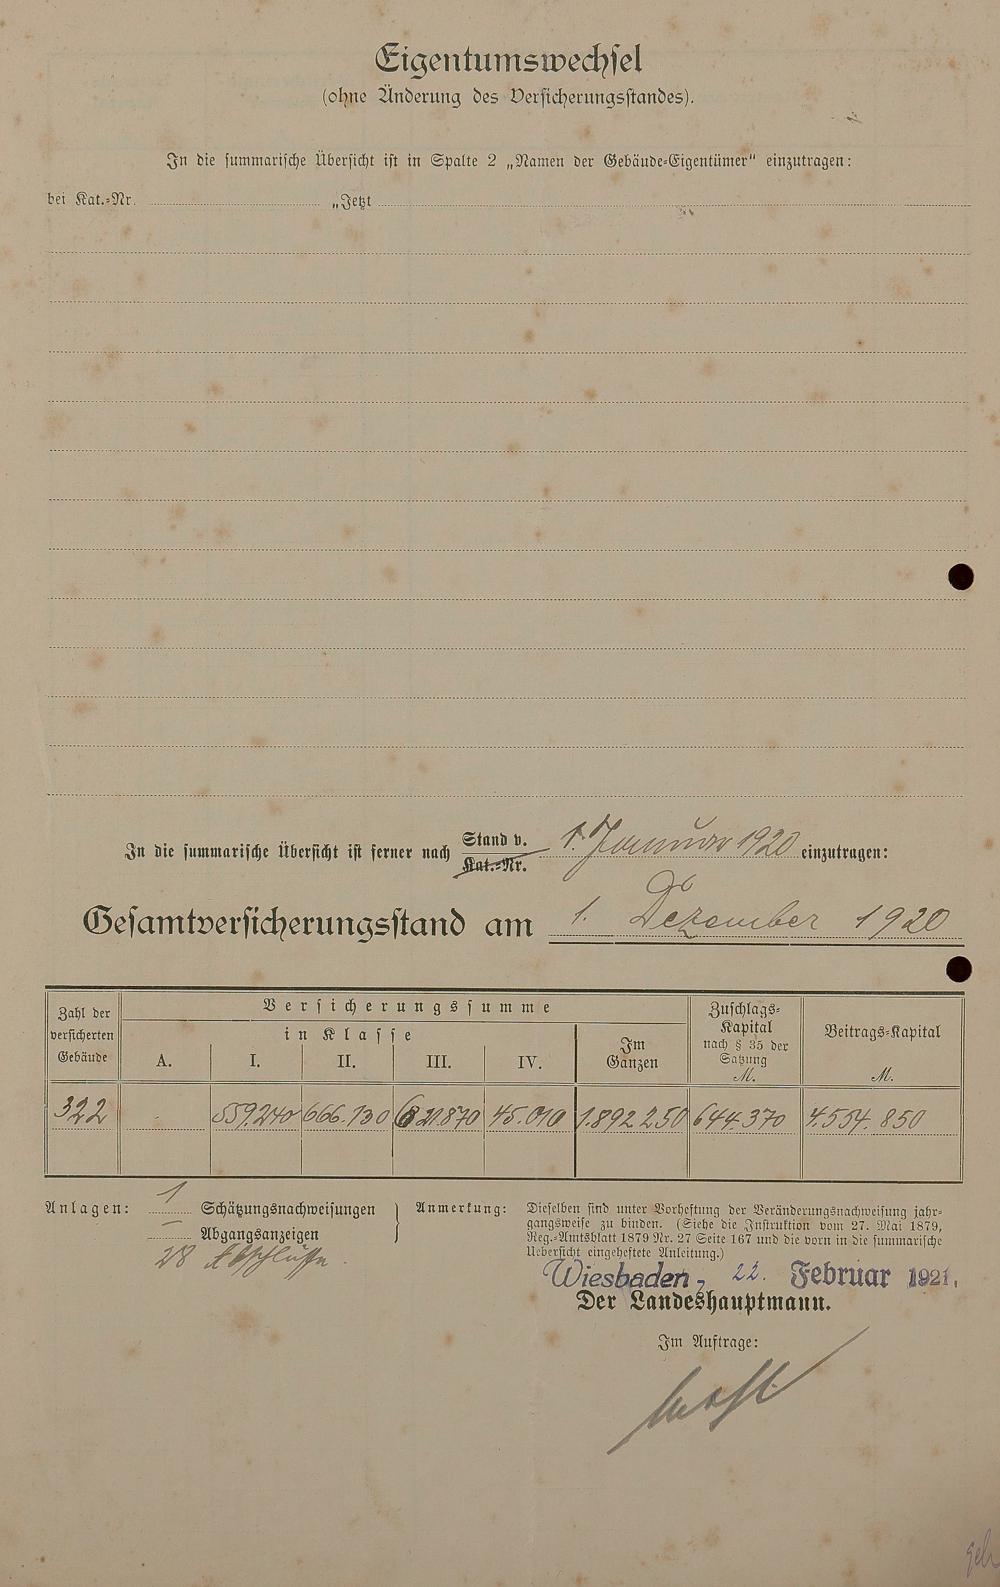 Eigentumswechsel
(ohne Änderung des Versicherungsstandes).
In die summarische Übersicht ist in Spalte 2 „Namen der Gebäude-Eigentümer“ einzutragen:
bei Kat.-Nr. „Jetzt
In die summarische Übersicht ist ferner nach Stand v. Kat.-Nr. 1. Januar 1920 einzutragen:
Gesamtversicherungsstand am 1. Dezember 1920
Zahl der versicherten Gebäude
Versicherungssumme
in Klasse
A. I. II. III. IV.
Im Ganzen
Zuschlags-Kapital nach § 35 der Satzung M.
Beitrags-Kapital M.
322 - 559.240 666.130 621.870 45.010 1.892 250 644.370 4.554.850
Anlagen: 1 Schätzungsnachweisungen
— Abgangsanzeigen
28 Abschlüsse.
Anmerkung: Dieselben sind unter Vorheftung der Veränderungsnachweisung jahr-
gangsweise zu binden. (Siehe die Instruktion vom 27. Mai 1879,
Reg.-Amtsblatt 1879 Nr. 27 Seite 167 und die vorn in die summarische
Uebersicht eingeheftete Anleitung.)
Wiesbaden, 22. Februar 1921.
Der Landeshauptmann.
Im Auftrage: